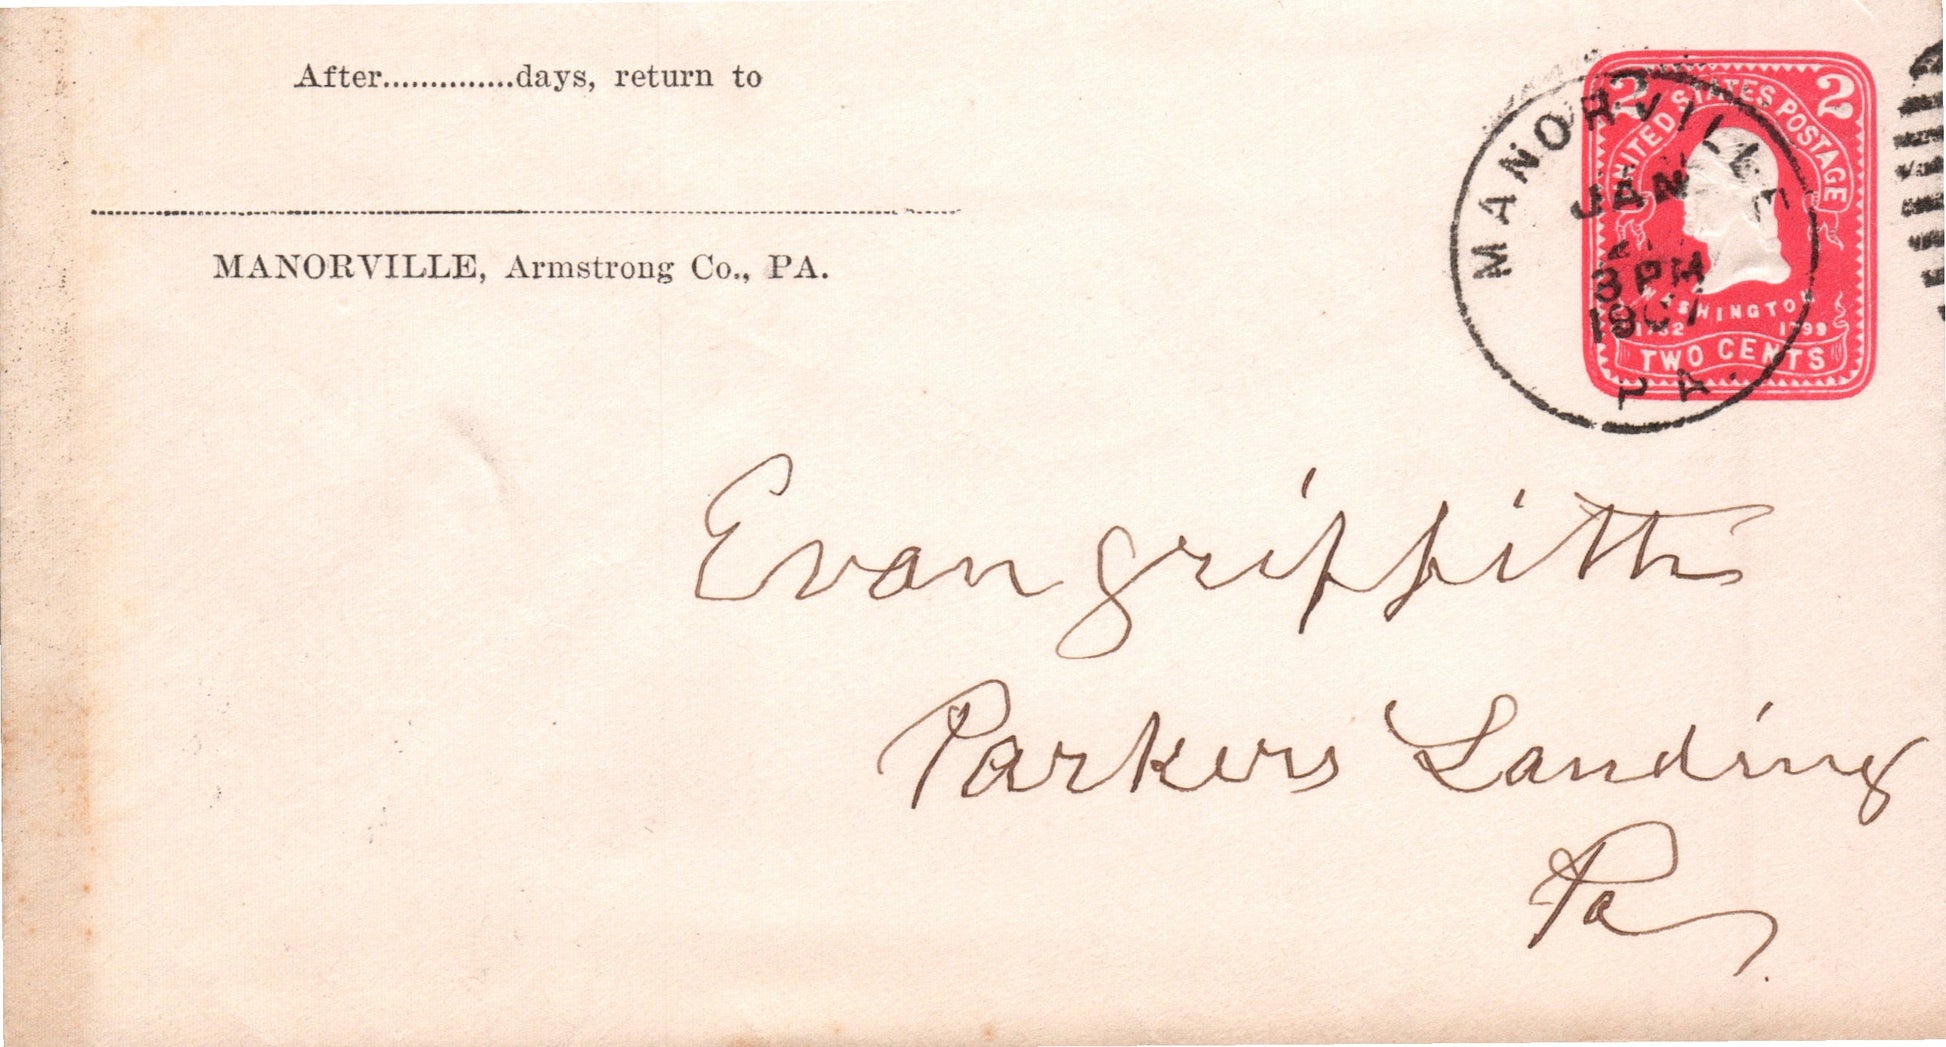 After..............days, return to
MANORVILLE, Armstrong Co., PA.
2 2
UNITED STATES POSTAGE
WASHINGTON
1732 1799
TWO CENTS
MANORVILLE
JAN
3 PM
1907
PA.
Evan Griffith
Parkers Landing
Pa